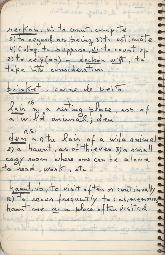 reckon, vt to count; compute
2) to regard as being 3) to estimate
4) (Colloq.) to suppose; vi to count up
2) to rely (on) - reckon with, to
take into consideration
lair is a resting place as of
a wild animal; den
as:
den n the lair of a wild animal
2) a haunt, as of thieves 3) a small
cozy room where one can be alone
to read, work, etc.
haunt, vt, to visit often or continually
2) to recur frequently to
haunt n a place often visited